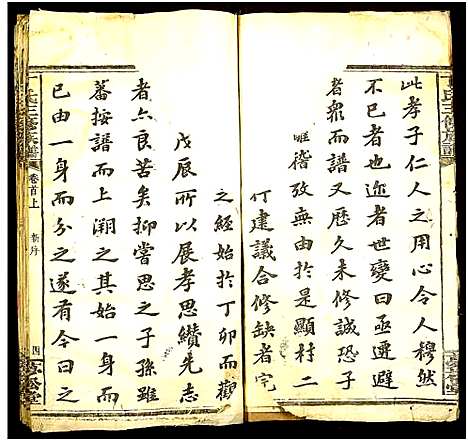 此孝子仁人之用心令人穆然
不已者也迩者世變日亟遷避
者衆而譜又歷久未修誠恐子
雖稽攷無由於是顯村二
仃建議合修缺者完
之經始於丁卯而觀
戊辰所以展孝思纘先志
者亦良苦矣抑嘗思之子孫雖
蕃按譜而上溯之其始一身而
已由一身而分之遂有今日之
氏三修族譜
卷首上
新序
四
氏三修族譜